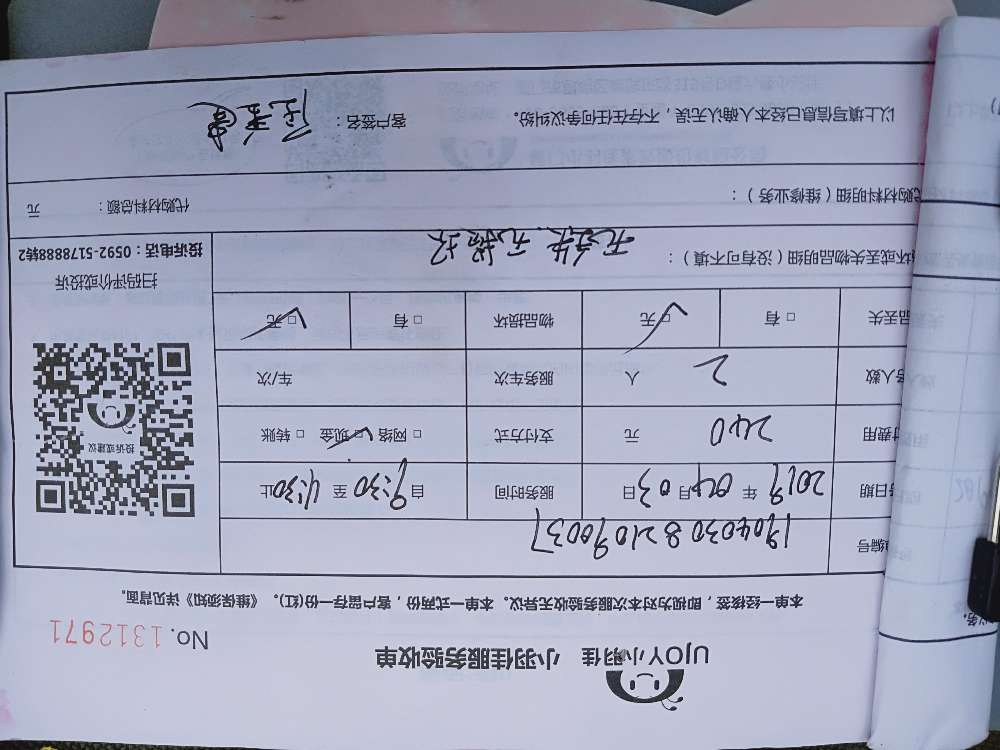 UJOY小羽佳 小羽佳服务验收单
No. 1312971
本单一经核签，即视为对本次服务验收无异议。本单一式两份，客户留存一份(红)。《维保须知》详见背面。
编号 1904030821090037
务日期 2019 年 04 月 03 日 服务时间 自 9:30 至 4:30 止
付费用 240 元 支付方式 □ 网络 □ 现金 □ 转账
务人数 2 人 服务车次 车/次
品丢失 □ 有 □ 无 物品损坏 □ 有 □ 无
投诉或建议
扫码评价或投诉
投诉电话：0592-5178888转2
坏或丢失物品明细（没有可不填）： 无丢失 无损坏
代购材料明细（维修业务）： 代购材料总额： 元
以上填写信息已经本人确认无误，不存在任何争议纠纷。 客户签名：